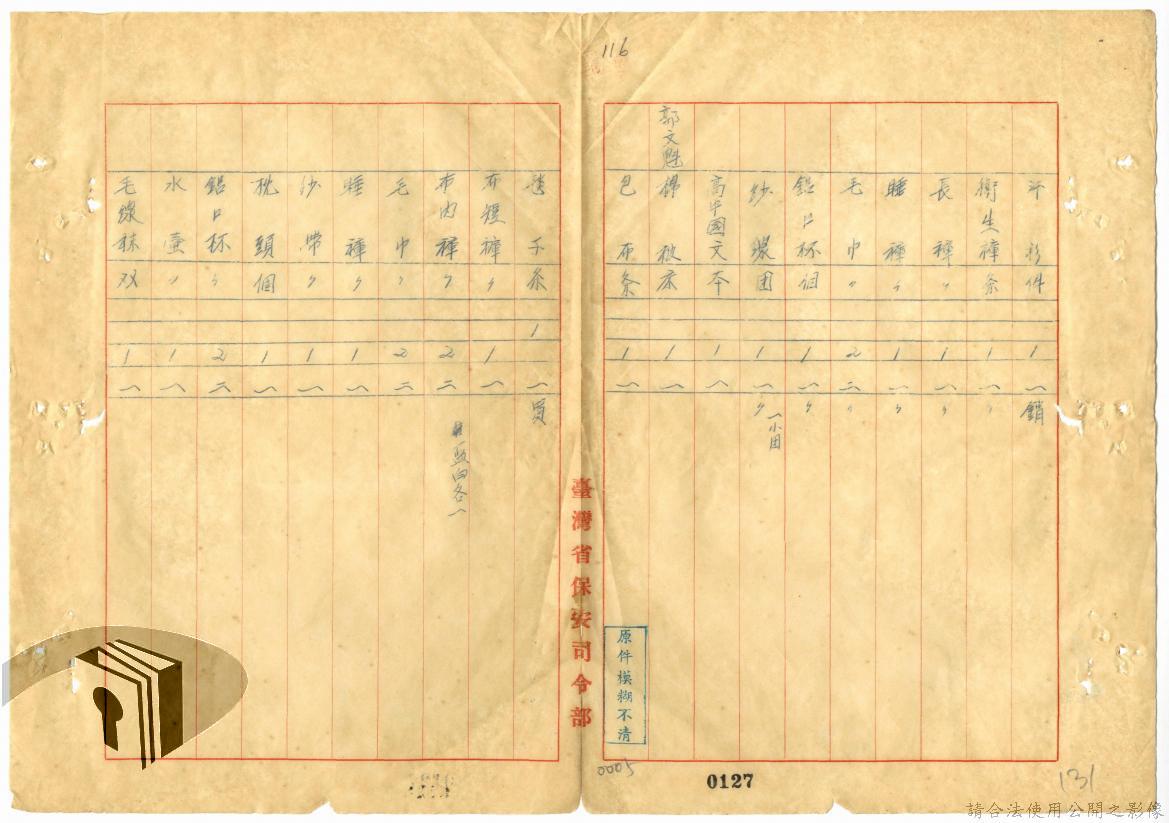 116
汗衫 件 1 一 銷
衛生褲 条 1 一 〃
長褲 〃 1 一 〃
睡褲 〃 1 一 〃
毛巾 〃 2 二 〃
鋁口杯 個 1 一 〃
紗線 团 1 一 〃 一小团
高中國文 本 1 一
郭文魁 棉被 床 1 一
包布 条 1 一
毯子 条 1 一 買
布短褲 〃 1 一
布内褲 〃 2 二 藍白各一
毛巾 〃 2 二
睡褲 〃 1 一
沙帶 〃 1 一
枕頭 個 1 一
鋁口杯 〃 2 二
水壷 〃 1 一
毛線袜 双 1 一
臺灣省保安司令部
原件模糊不清
0005
0127
131
請合法使用公開之影像